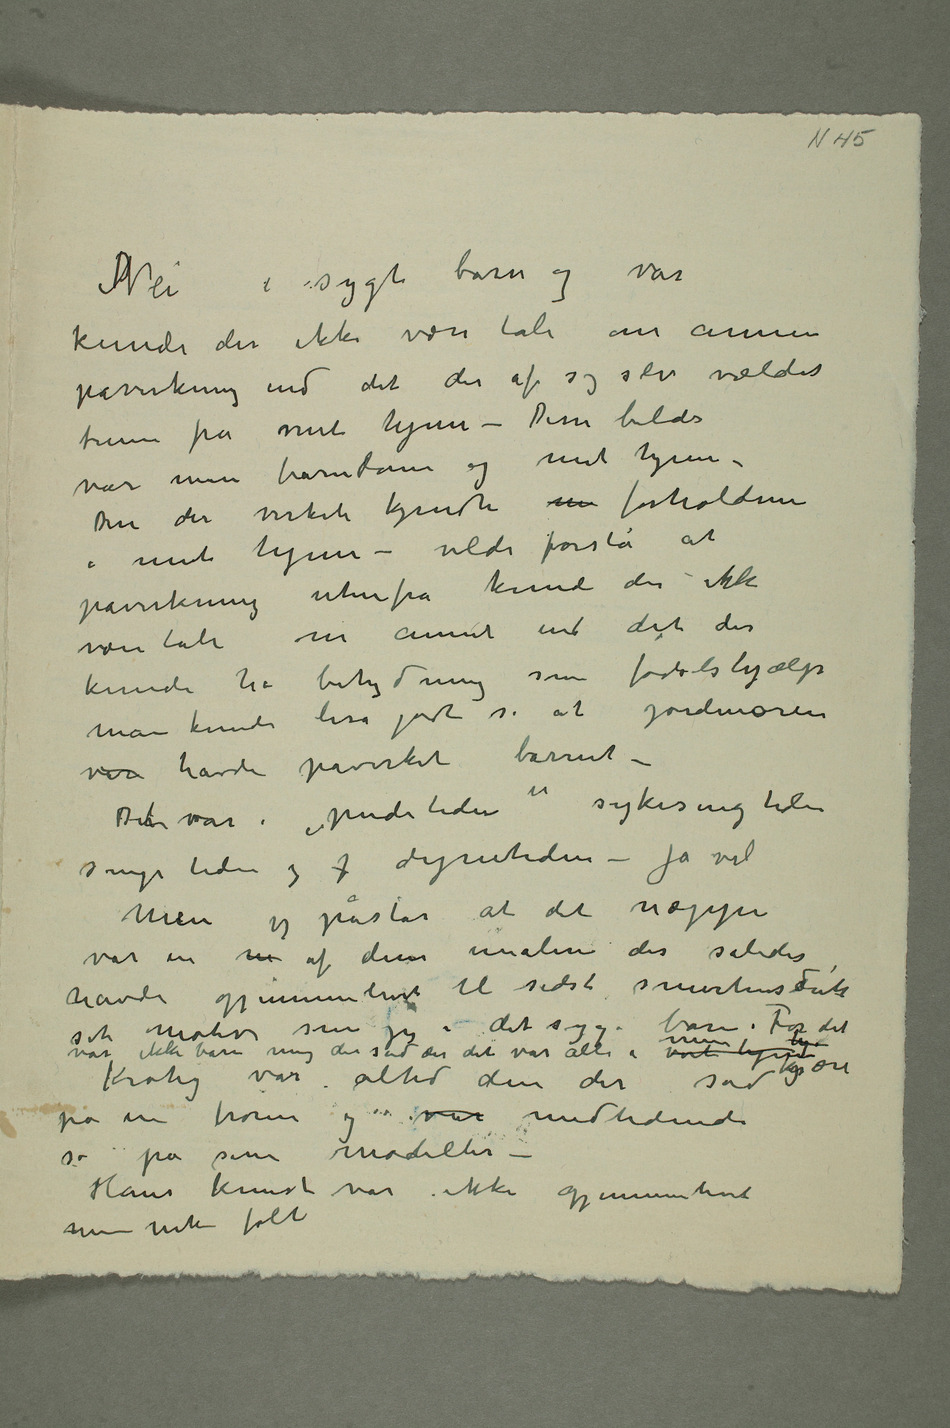 N 45
Nei i sygt barn og vår
kunde der ikke være tale om annen
påvirkning end det der af sig selv vældet
frem fra mit hjem – Disse bilder
var min barndom og mit hjem –
Den der virkelig kjendte forholdene
i mit hjem – vilde forstå at
påvirkning utenfra kunde der ikke
være tale om annet end det der
kunde ha betydning som fødselshjælp
man kunde lisså godt si at jordmoren
var havde påvirket barnet –
Det var i „pudetiden" sykesengtiden
senge tiden og dynetiden – Ja vel
Men jeg påstår at det næppe
var en af disse malere der således
havde gjennemlevet til sidste smertensskrik
sit motiv som jeg i det syge barn. For det
var ikke bare mig der sad der det var alle mine kjære
Krohg var altid den der sad
på en trone og var medlidende
så på sine modeller –
Hans kunst var ikke gjennemlevet
men nok følt